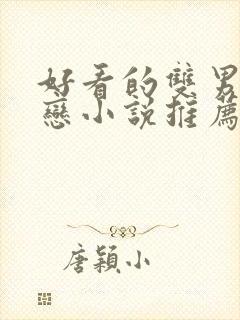 好看的雙男
戀小說推薦
唐穎小